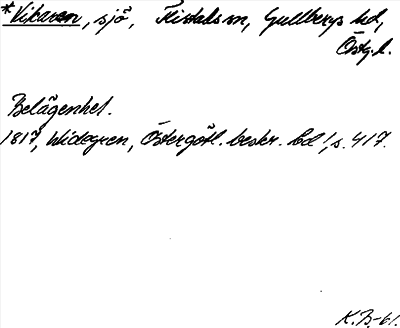 *Vikaren, sjö, Tjällmo sn, Gullbergs hd,
Östg.l.
Belägenhet.
1817, Widegren, Östergötl. beskr. bd 1, s. 417.
K.B.-61.